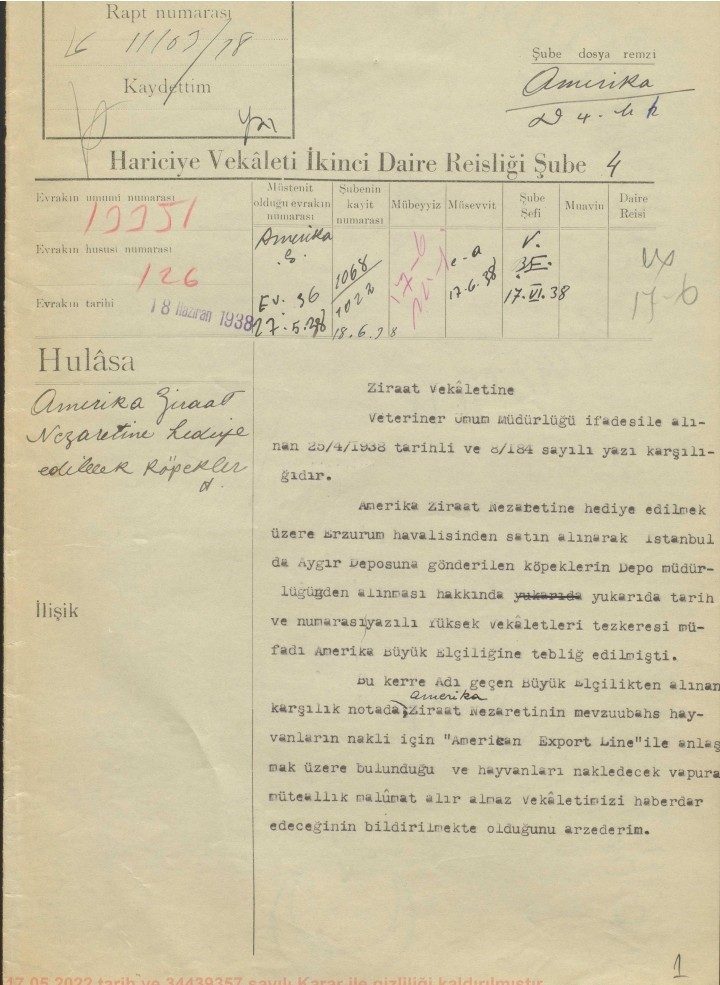 Rapt numarası
11103/78
Kaydettim
Şube dosya remzi
Amerika
Hariciye Vekâleti İkinci Daire Reisliği Şube 4
Evrakın umumi numarası
Müstenit olduğu evrakın numarası
Şubenin kayit numarası
Mübeyyiz
Müsevvit
Şube Şefi
Muavin
Daire Reisi
Evrakın hususi numarası
126
Evrakın tarihi
18 Haziran 1938
Amerika
Ev. 36
27.5.38
1068
1022
18.6.38
17-6
17.6.38
V.
17.VI.38
17-6
Hulâsa
Amerika Ziraat
Nezaretine hediye
edilecek köpekler
İlişik
Ziraat Vekâletine
Veteriner Umum Müdürlüğü ifadesile alı-
nan 25/4/1938 tarihli ve 8/184 sayılı yazı karşılı-
ğıdır.
Amerika Ziraat Nezaretine hediye edilmek
üzere Erzurum havalisinden satın alınarak İstanbul
da Aygır Deposuna gönderilen köpeklerin Depo müdür-
lüğünden alınması hakkında yukarıda yukarıda tarih
ve numarası yazılı Yüksek Vekâletleri tezkeresi mü-
fadı Amerika Büyük Elçiliğine tebliğ edilmişti.
Bu kerre Adı geçen Büyük Elçilikten alınan
karşılık notada, Amerika Ziraat Nezaretinin mevzuubahs hay-
vanların nakli için "American Export Line"ile anlaş
mak üzere bulunduğu ve hayvanları nakledecek vapura
müteallik malûmat alır almaz Vekâletimizi haberdar
edeceğinin bildirilmekte olduğunu arzederim.
1
17.05.2022 tarih ve 34439357 sayılı Karar ile gizliliği kaldırılmıştır